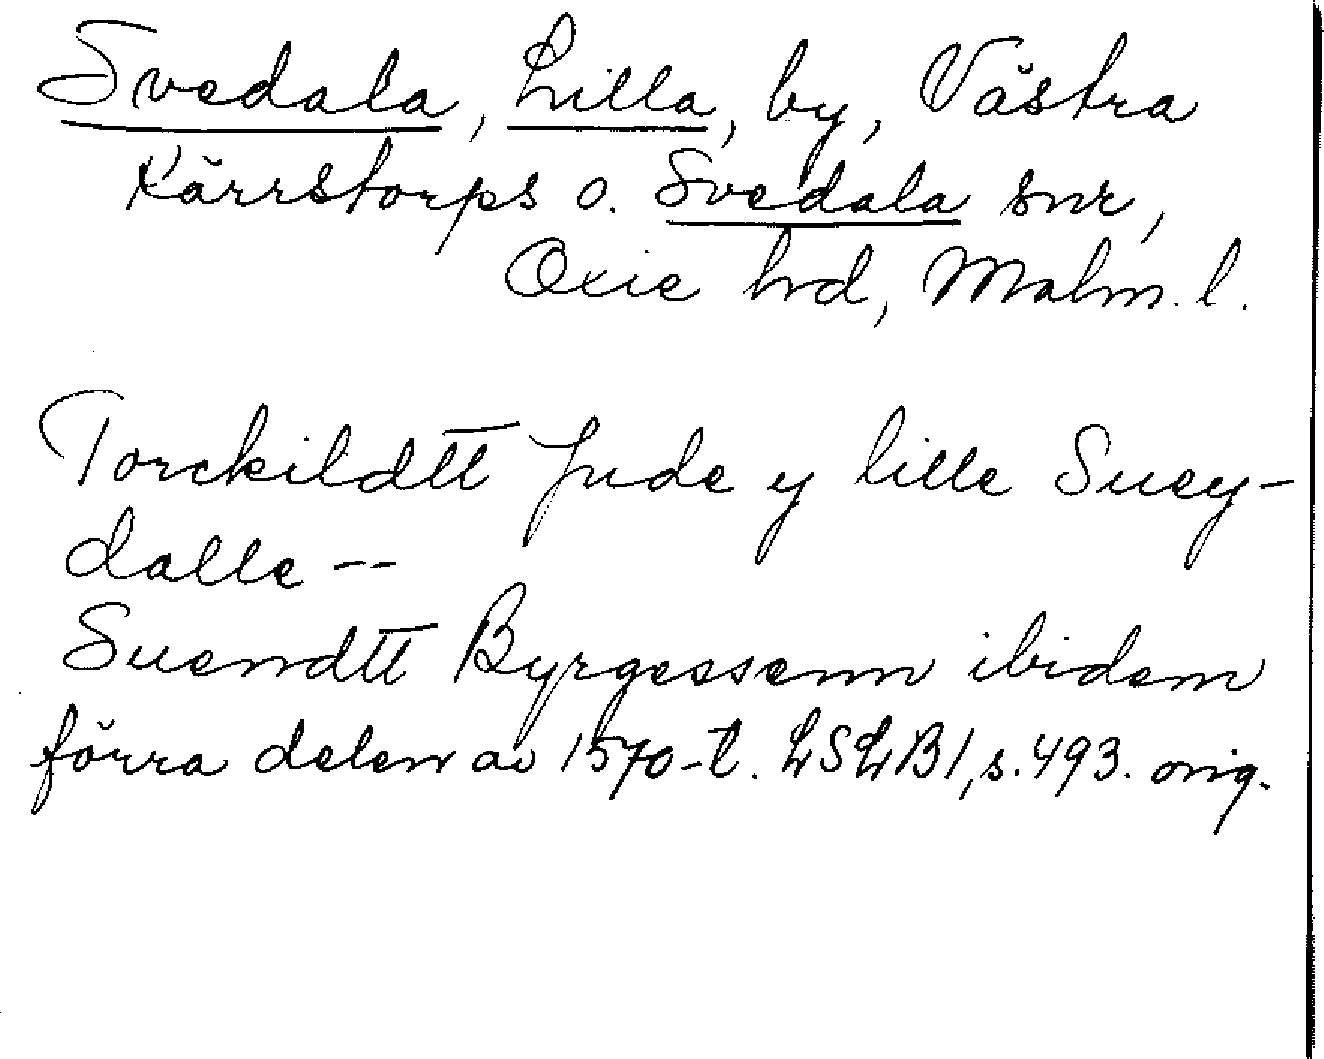 Svedala, Lilla, by, Västra
Kärrstorps o. Svedala snr,
Oxie hrd, Malm. l.
Torckildtt Jude y lille Suey-
dalle --
Suendtt Byrgessenn ibidem
förra delen av 1570-t. LSLB1, s. 493. orig.